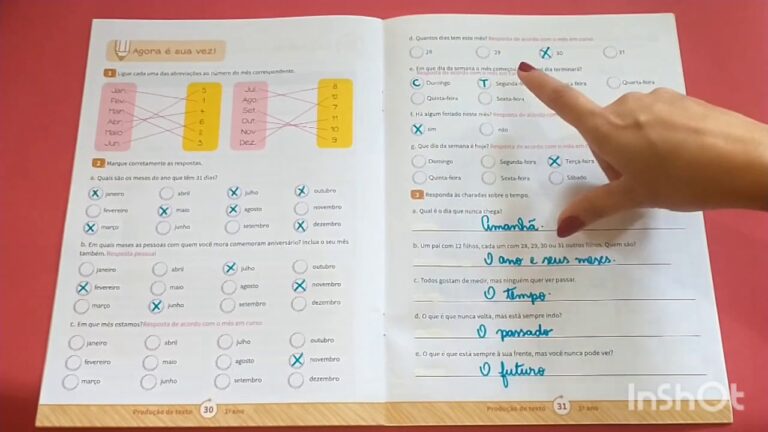 Agora é sua vez!
1 Ligue cada uma das abreviações ao número do mês correspondente.
Jan. 5
Fev. 1
Mar. 4
Abr. 6
Maio 2
Jun. 3
Jul. 8
Ago. 12
Set. 7
Out. 11
Nov. 10
Dez. 9
2 Marque corretamente as respostas.
a. Quais são os meses do ano que têm 31 dias?
X janeiro abril X julho X outubro
fevereiro X maio X agosto novembro
X março junho setembro X dezembro
b. Em quais meses as pessoas com quem você mora comemoram aniversário? Inclua o seu mês
também. Resposta pessoal
janeiro abril X julho outubro
X fevereiro maio agosto X novembro
março X junho setembro dezembro
c. Em que mês estamos? Resposta de acordo com o mês em curso
janeiro abril julho outubro
fevereiro maio agosto X novembro
março junho setembro dezembro
Produção de texto 30 1º ano
d. Quantos dias tem este mês? Resposta de acordo com o mês em curso
28 29 X 30 31
e. Em que dia da semana o mês começou dia terminará?
Resposta de acordo com o mês em
C Domingo T Segunda Quarta-feira
Quinta-feira Sexta-feira
f. Há algum feriado neste mês? Resposta de acordo com
X sim não
g. Que dia da semana é hoje? Resposta de acordo com o mês em
Domingo Segunda-feira X Terça-feira
Quinta-feira Sexta-feira Sábado
3 Responda às charadas sobre o tempo.
a. Qual é o dia que nunca chega?
Amanhã.
b. Um pai com 12 filhos, cada um com 28, 29, 30 ou 31 outros filhos. Quem são?
O ano e seus meses.
c. Todos gostam de medir, mas ninguém quer ver passar.
O tempo.
d. O que é que nunca volta, mas está sempre indo?
O passado
e. O que é que está sempre à sua frente, mas você nunca pode ver?
O futuro
Produção de texto 31 1º ano
InShOt